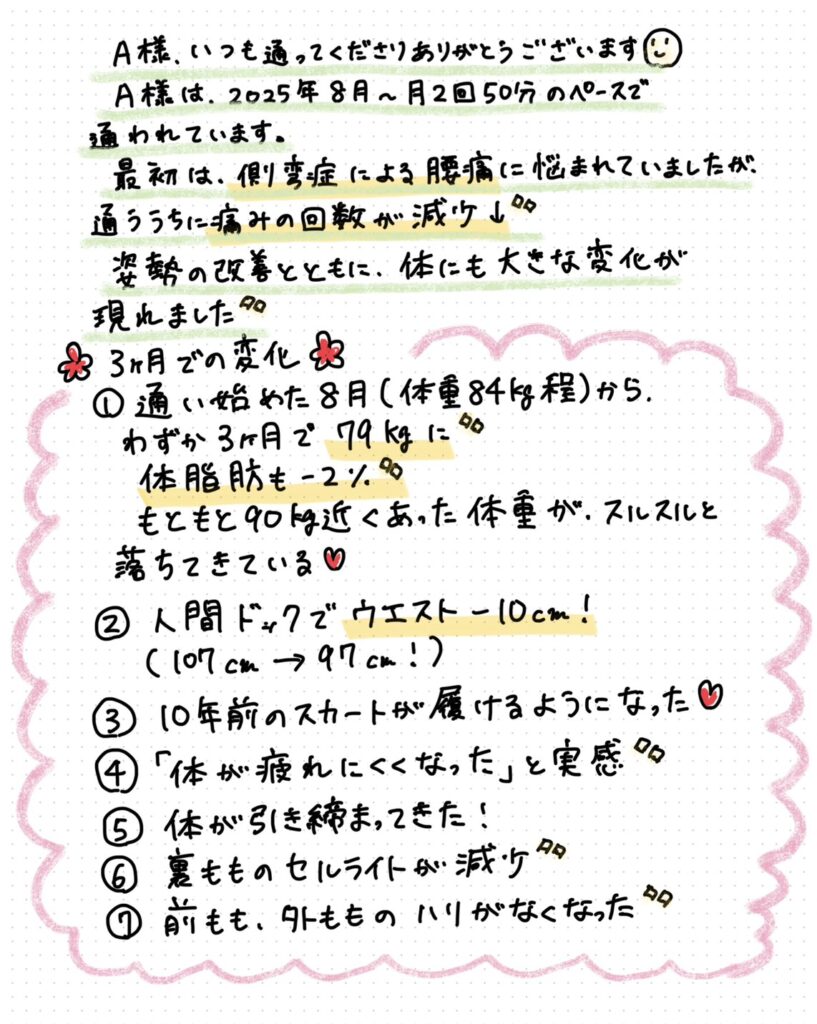 A様、いつも通ってくださりありがとうございます
A様は、2025年8月〜月2回50分のペースで
通われています。
最初は、側弯症による腰痛に悩まれていましたが、
通ううちに痛みの回数が減少↓
姿勢の改善とともに、体にも大きな変化が
現れました
3ヶ月での変化
① 通い始めた8月(体重84kg程)から、
わずか3ヶ月で79kgに
体脂肪も-2%
もともと90kg近くあった体重が、スルスルと
落ちてきている
② 人間ドックでウエスト-10cm!
(107cm→97cm!)
③ 10年前のスカートが履けるようになった
④「体が疲れにくくなった」と実感
⑤ 体が引き締まってきた!
⑥ 裏もものセルライトが減少
⑦ 前もも、外もものハリがなくなった